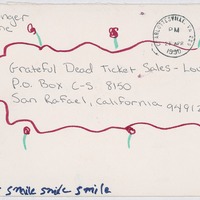 nger
ne
CHARLOTTESVILLE, VA
PM
1990
Grateful Dead Ticket Sales - Lou
P.O. Box C-S. 8150
San Rafael, California 94912
smile smile smile